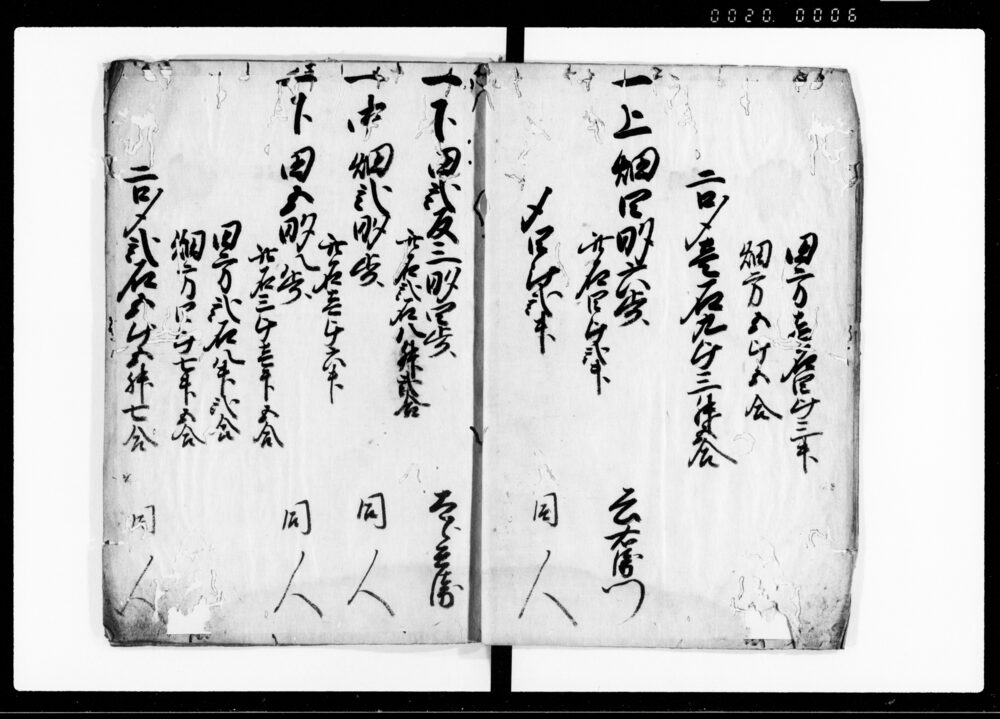 0020. 0006
田方壱石四斗三升
畑方五斗五合
二口〆壱石九斗三升五合
一上畑四畝六歩
此石四斗弐升
〆四斗弐升
同人
一下田弐反三畝四歩
此石弐石八升弐合
一中畑弐畝歩
此石壱斗六升
同人
一下田五畝八歩
此石三斗壱升五合
同人
田方弐石八升弐合
畑方四斗七升五合
二口〆弐石五斗五升七合
同人